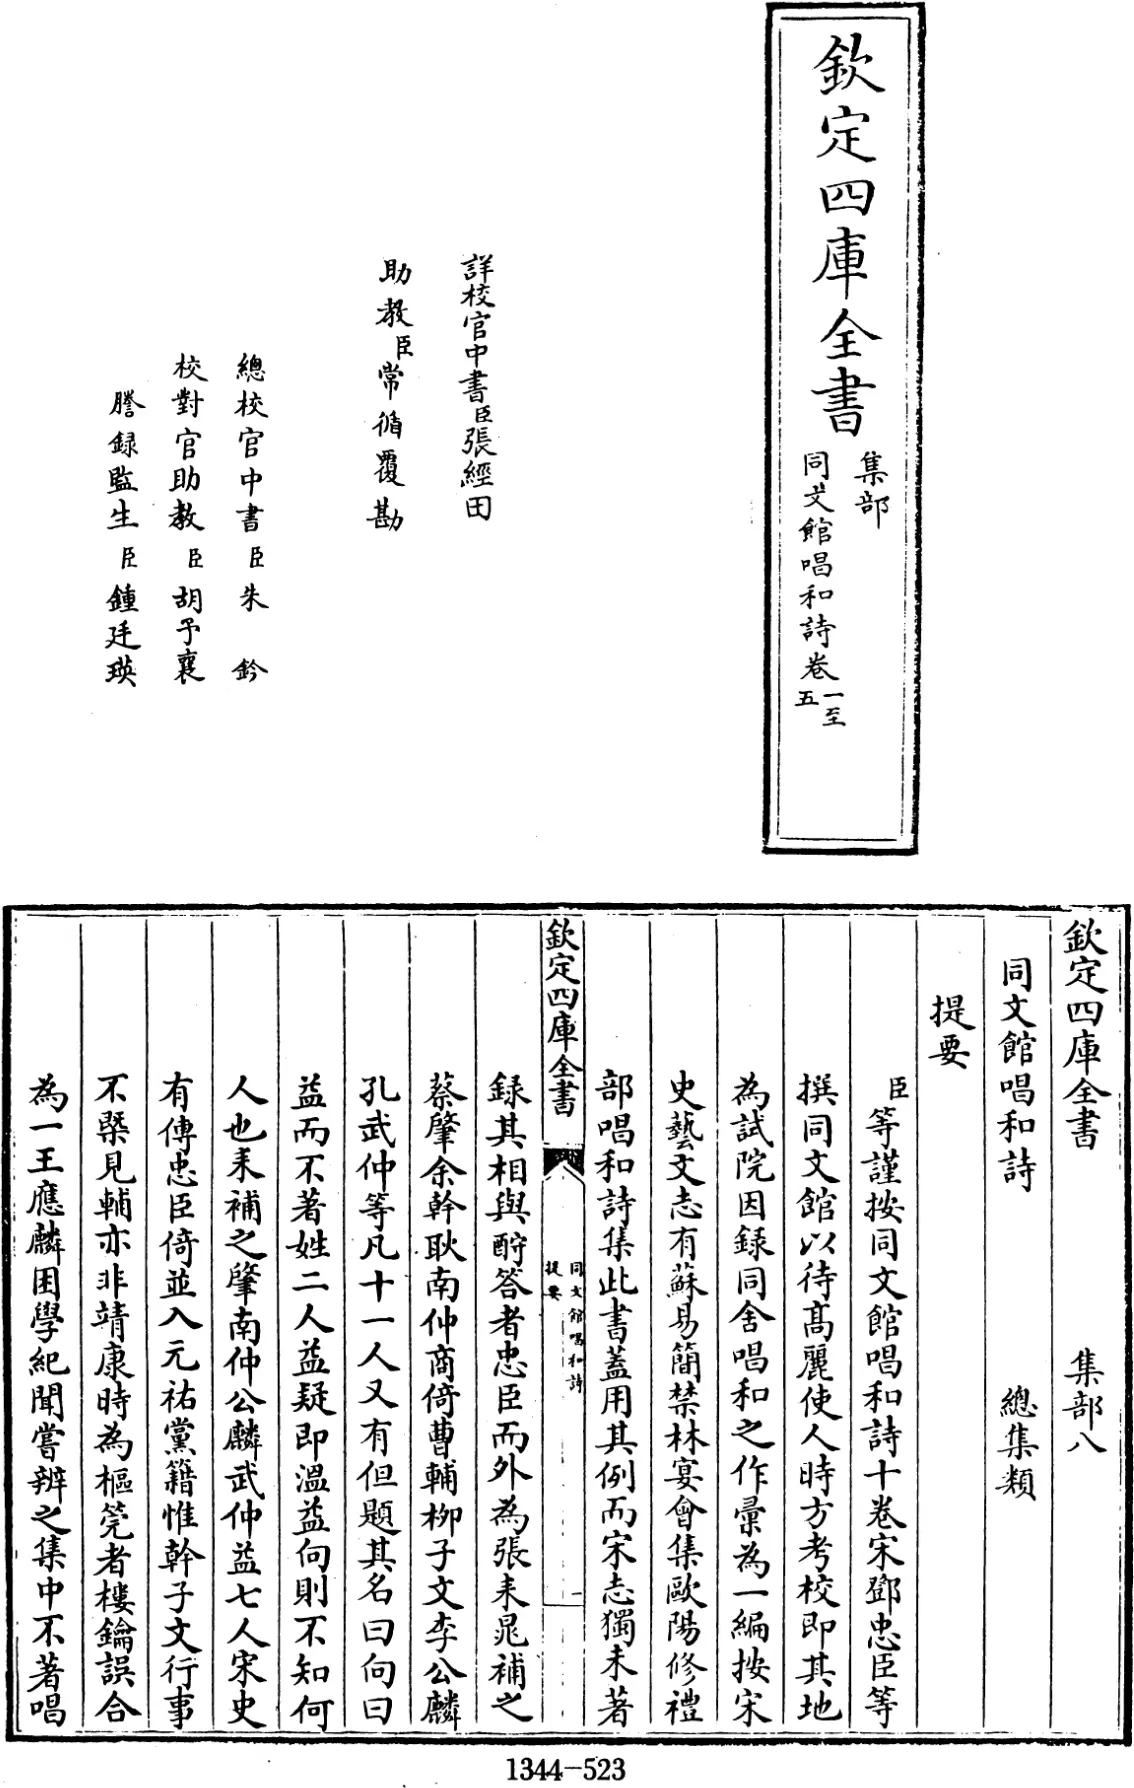 欽定四庫全書
集部
同文館唱和詩卷一至五
詳校官中書臣張經田
助教臣常循覆勘
總校官中書臣朱鈐
校對官助教臣胡予襄
謄録監生臣鍾廷瑛
欽定四庫全書 集部八
同文館唱和詩 總集類
提要
臣等謹按同文館唱和詩十卷宋鄧忠臣等
撰同文館以待高麗使人時方考校即其地
為試院因録同舍唱和之作彚為一編按宋
史藝文志有蘇易簡禁林宴會集歐陽修禮
部唱和詩集此書蓋用其例而宋志獨未著
欽定四庫全書
同文館唱和詩
提要
一
録其相與酧答者忠臣而外為張耒晁補之
蔡肇余幹耿南仲商倚曹輔柳子文李公麟
孔武仲等凡十一人又有但題其名曰向曰
益而不著姓二人益疑即温益向則不知何
人也耒補之肇南仲公麟武仲益七人宋史
有傳忠臣倚並入元祐黨籍惟幹子文行事
不槩見輔亦非靖康時為樞筦者樓鑰誤合
為一王應麟困學紀聞嘗辨之集中不著唱
1344-523